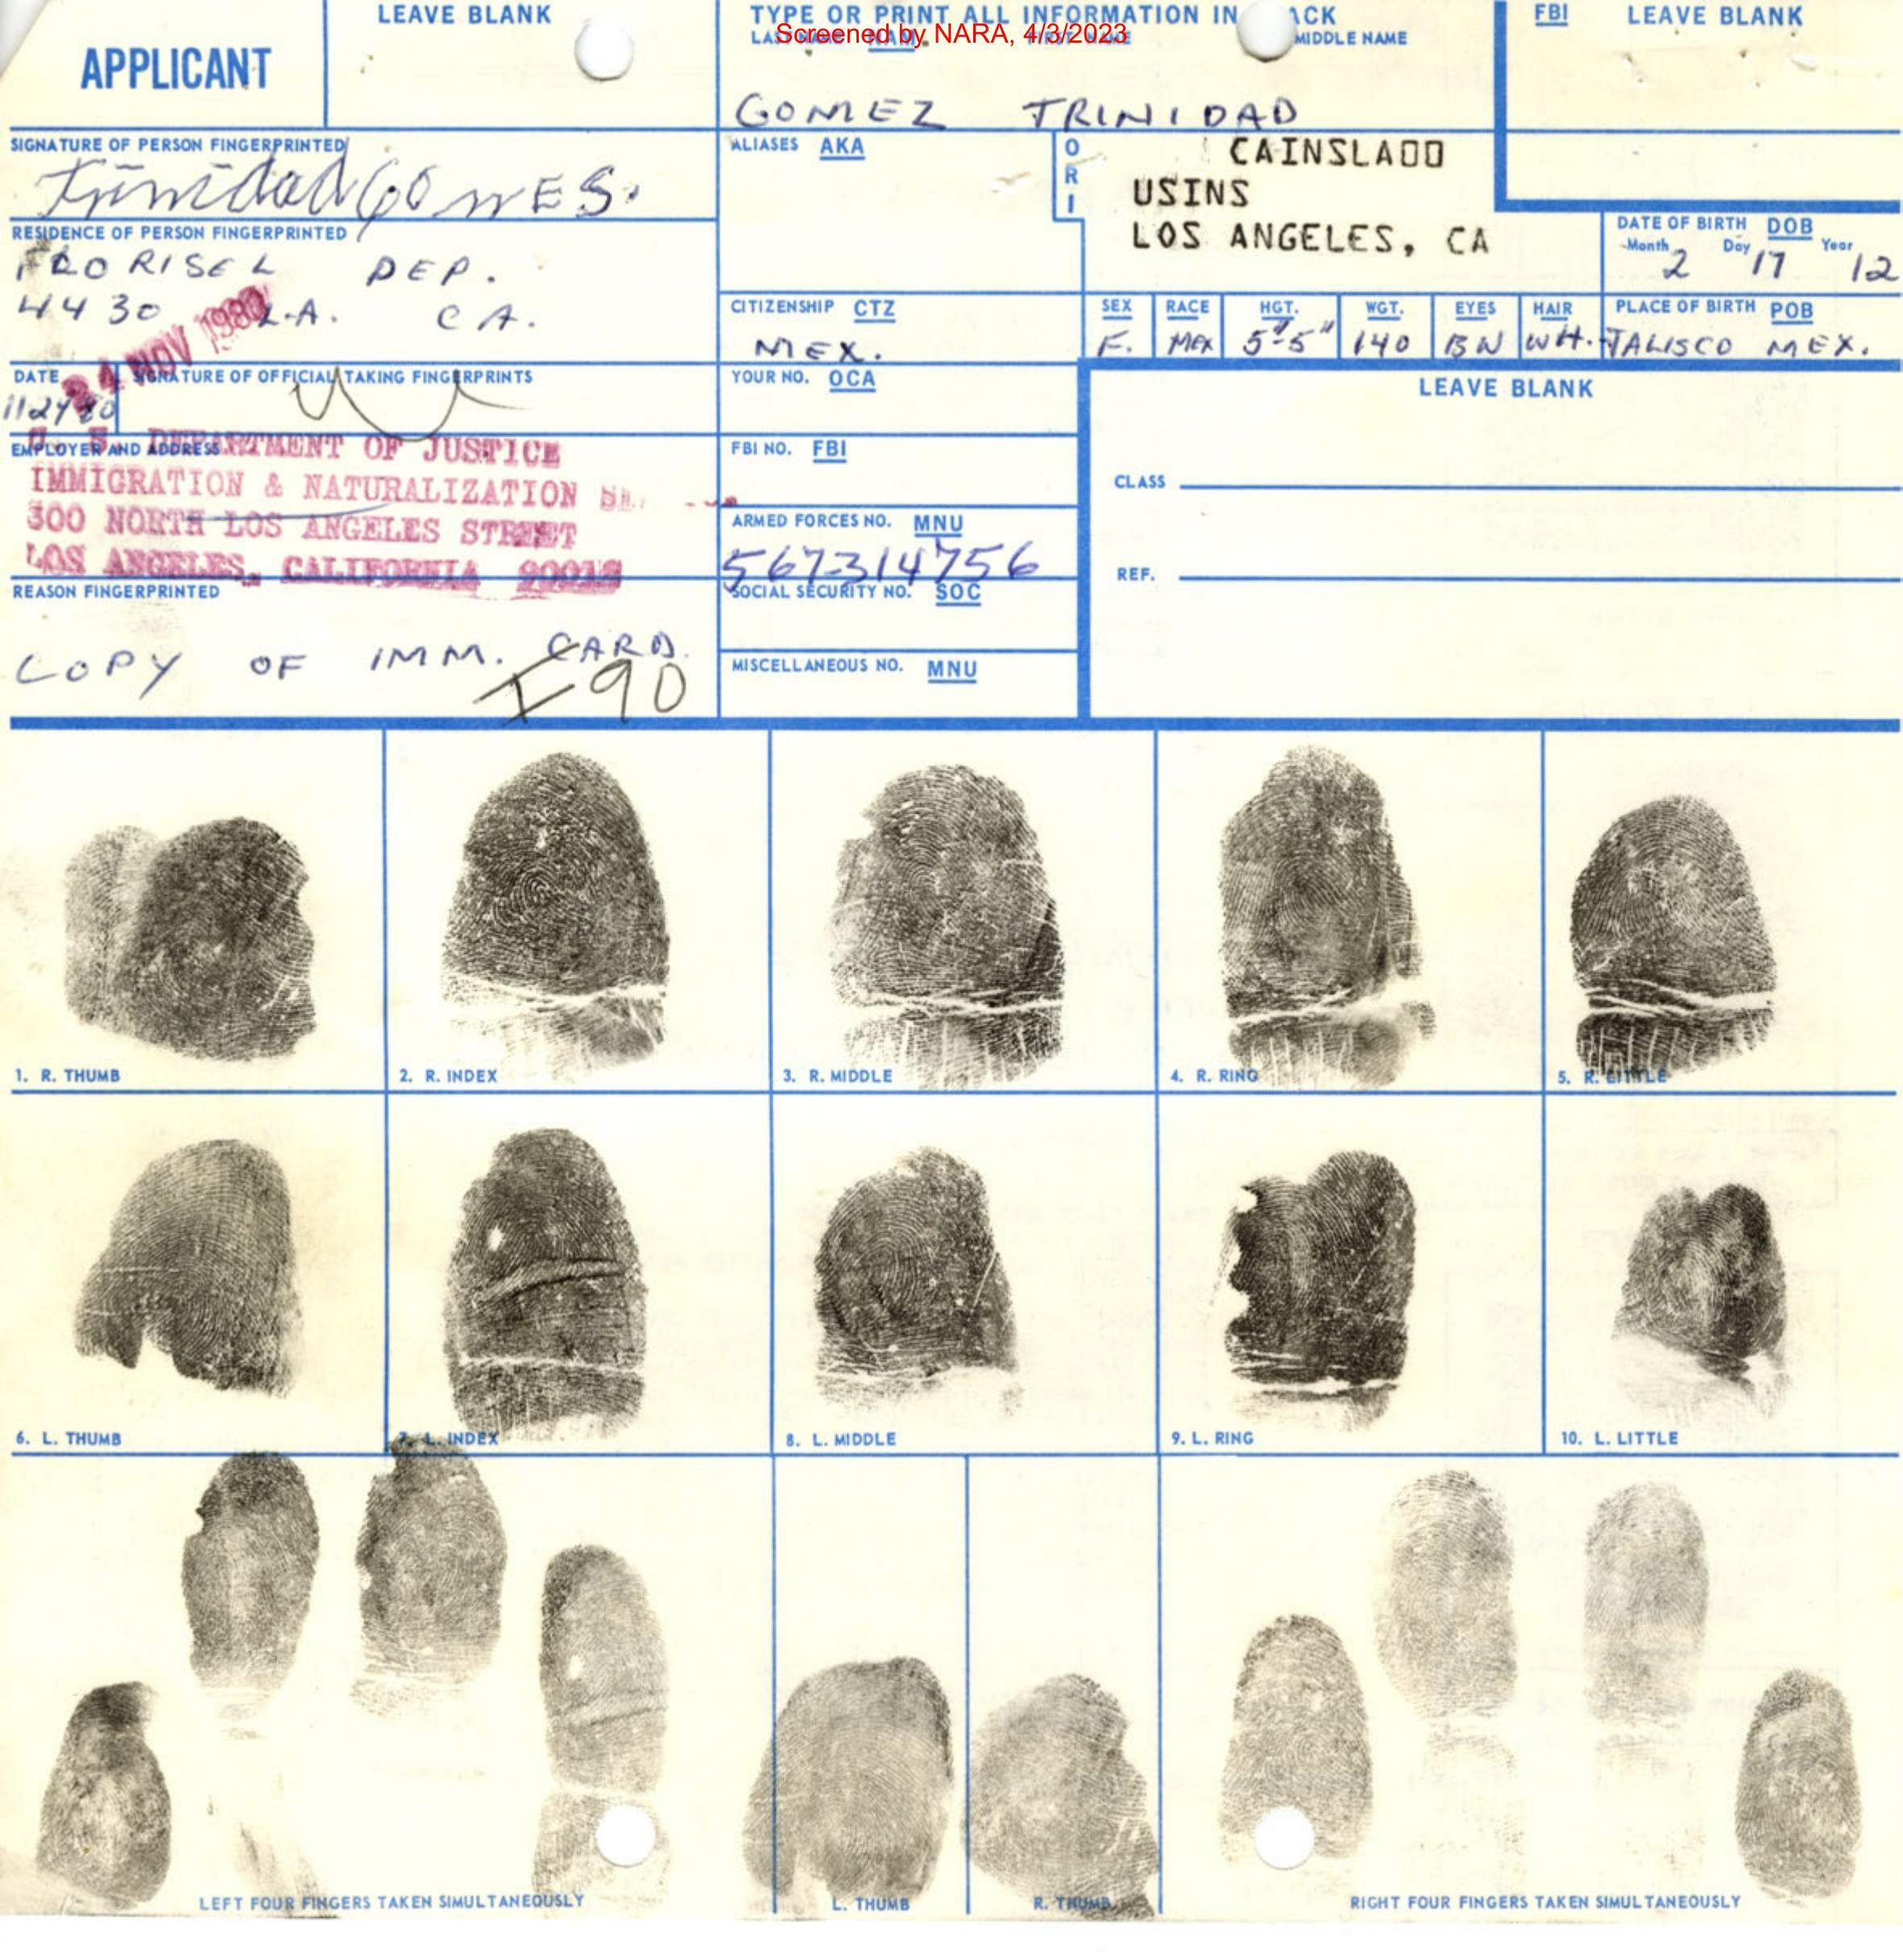 APPLICANT
LEAVE BLANK
TYPE OR PRINT ALL INFORMATION IN ACK
Screened by NARA, 4/3/2023
LAST NAME NAM FIRST NAME MIDDLE NAME
GOMEZ TRINIDAD
FBI LEAVE BLANK
SIGNATURE OF PERSON FINGERPRINTED
Trinidad GOMES.
ALIASES AKA
ORI
CAINSLA00
USINS
LOS ANGELES, CA
RESIDENCE OF PERSON FINGERPRINTED
FLORISEL DEP.
4430 L.A. CA.
24 NOV 1980
DATE OF BIRTH DOB
Month Day Year
2 17 12
CITIZENSHIP CTZ
MEX.
SEX RACE HGT. WGT. EYES HAIR PLACE OF BIRTH POB
F. MEX 5'-5" 140 BN WH. JALISCO MEX.
DATE SIGNATURE OF OFFICIAL TAKING FINGERPRINTS
112480
YOUR NO. OCA
LEAVE BLANK
EMPLOYER AND ADDRESS
U. S. DEPARTMENT OF JUSTICE
IMMIGRATION & NATURALIZATION
300 NORTH LOS ANGELES STREET
LOS ANGELES, CALIFORNIA 90012
FBI NO. FBI
CLASS
ARMED FORCES NO. MNU
567314756
REF.
REASON FINGERPRINTED
COPY OF IMM. CARD.
I-90
SOCIAL SECURITY NO. SOC
MISCELLANEOUS NO. MNU
1. R. THUMB
2. R. INDEX
3. R. MIDDLE
4. R. RING
5. R. LITTLE
6. L. THUMB
7. L. INDEX
8. L. MIDDLE
9. L. RING
10. L. LITTLE
LEFT FOUR FINGERS TAKEN SIMULTANEOUSLY
L. THUMB
R. THUMB
RIGHT FOUR FINGERS TAKEN SIMULTANEOUSLY